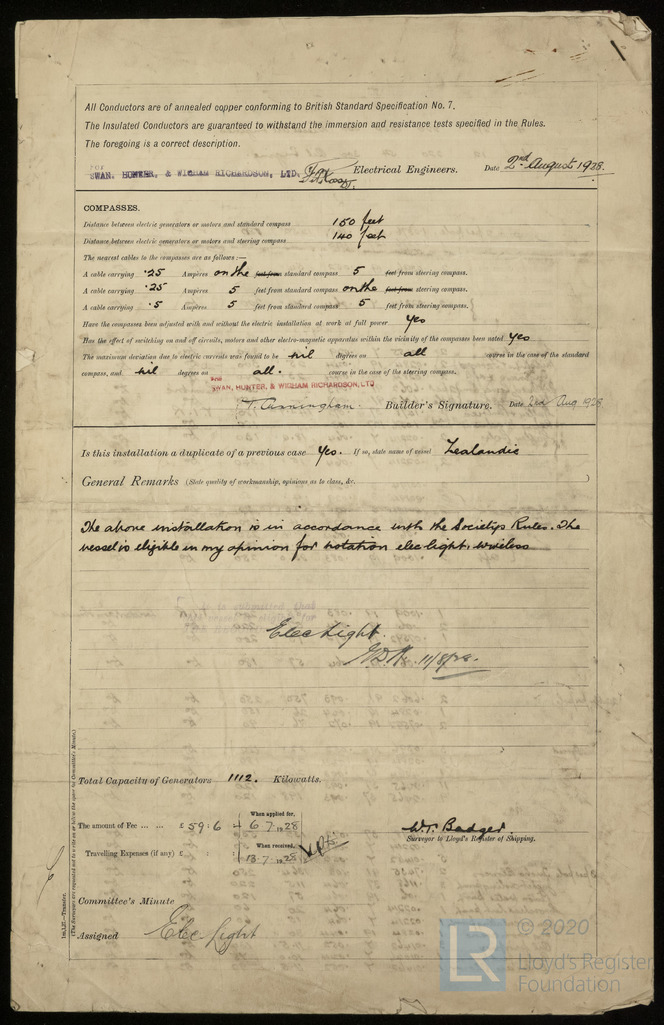 All Conductors are of annealed copper conforming to British Standard Specification No. 7.
The Insulated Conductors are guaranteed to withstand the immersion and resistance tests specified in the Rules.
The foregoing is a correct description.
FOR
SWAN, HUNTER, & WIGHAM RICHARDSON, LTD. Electrical Engineers. Date 2nd August 1928.
COMPASSES.
Distance between electric generators or motors and standard compass 150 feet
Distance between electric generators or motors and steering compass 140 feet
The nearest cables to the compasses are as follows:—
A cable carrying .25 Ampères on the feet from standard compass 5 feet from steering compass.
A cable carrying .25 Ampères 5 feet from standard compass on the feet from steering compass.
A cable carrying .5 Ampères 5 feet from standard compass 5 feet from steering compass.
Have the compasses been adjusted with and without the electric installation at work at full power Yes
Has the effect of switching on and off circuits, motors and other electro-magnetic apparatus within the vicinity of the compasses been noted Yes
The maximum deviation due to electric currents was found to be nil degrees on all course in the case of the standard
compass, and nil degrees on all. course in the case of the steering compass.
FOR
SWAN, HUNTER, & WIGHAM RICHARDSON, LTD
T. Cunningham. Builder's Signature. Date 2nd Aug 1928
Is this installation a duplicate of a previous case Yes. If so, state name of vessel Zealandic
General Remarks (State quality of workmanship, opinions as to class, &c.
)
The above installation is in accordance with the Society's Rules. The
vessel is eligible in my opinion for notation elec. light, wireless
Elec Light.
11/8/28.
Total Capacity of Generators 1112. Kilowatts.
The amount of Fee ... ... £ 59:6 When applied for, 6.7.1928
W.T. Badger.
Surveyor to Lloyd's Register of Shipping.
Travelling Expenses (if any) £ When received, 13.7.1928
Committee's Minute
Assigned Elec Light
1m.LE.—Transfer.
(The Surveyors are requested not to write on or below the space for Committee's Minute.)
© 2020
LR
Lloyd's Register
Foundation